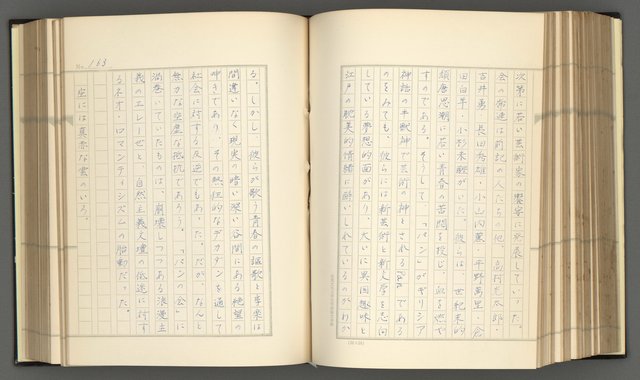 次第に若い芸術家の饗宴に発展していった。
会の常連は前記の人たちの他、高村光太郎・
吉井勇・長田秀雄・小山内薫・平野萬里・倉
田白羊・小杉未醒がいた。彼らは、世紀末的
頽唐思潮に若い青春の苦悶を投じ、血を燃や
すのである。そうして「パン」がギリシア
神話の半獣神で芸術の神とされるPanである
のをみても、彼らには新芸術と新文学を志向
している夢想的面があり、大いに異国趣味と
江戸の耽美的情緒に酔いしれているのがわか
No. 163
る。しかし、彼らの歌う青春の謳歌と享楽は
間違いなく現実の暗い深い谷間にある絶望の
呻きであり、その熱狂的なデカダンを通して
社会に対する反逆でもあった。だが、なんと
無力な空虚な抵抗であろう。「パンの会」に
渦巻いていたものは、崩壊しつつある浪漫主
義のエレジーぜと、自然主義文壇の低迷に対す
るネオ・ロマンティシズムの胎動だった。
空には真赤な雲のいろ。